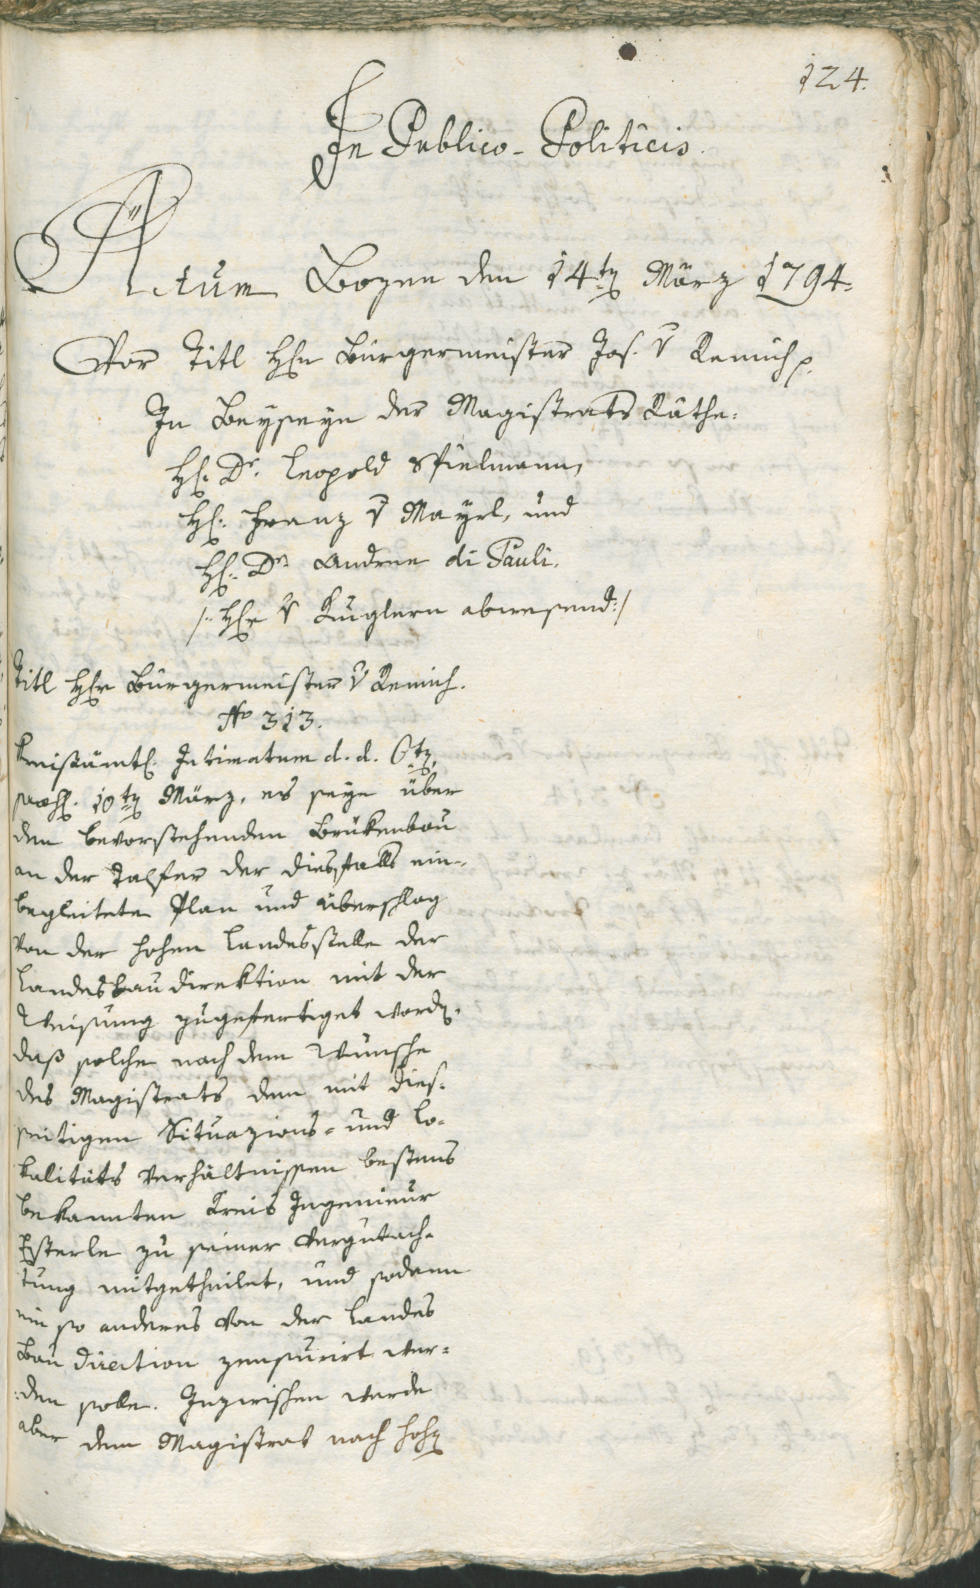 124.
In Publico-Politicis.
Actum Bozen den 14ten März 1794.
Vor Titl Hhn Bürgermeister Jos. v Remich p.
In Beyseyn der Magistrats Räthe.
Hh. Dr. Leopold Spielmann,
Hh. Franz v Mayrl, und
Hh. Dr. Andree di Pauli.
/: Hhr v Kuglern abwesend:/
Titl Hhr Bürgermeister v Remich.
No 313.
Kreisämtl. Intimatum d. d. 6ten,
präs. 10ten März, es seye über
den bevorstehenden Brükenbau
an der Talfer der diesfalls ein-
begleitete Plan und Überschlag
von der hohen Landesstelle der
Landesbaudirektion mit der
Weisung zugefertiget worden.
daß solche nach dem Wunsche
des Magistrats dem mit dies-
seitigen Situazions- und Lo-
kalitäts Verhältnissen bestens
bekannten Kreis Ingenieur
Esterle zu seiner Vergutach-
tung mitgetheilet, und sodann
ein so anderes von der Landes
Bau Direction zensurirt wer-
den solle. Inzwischen werde
aber dem Magistrat nach hohen